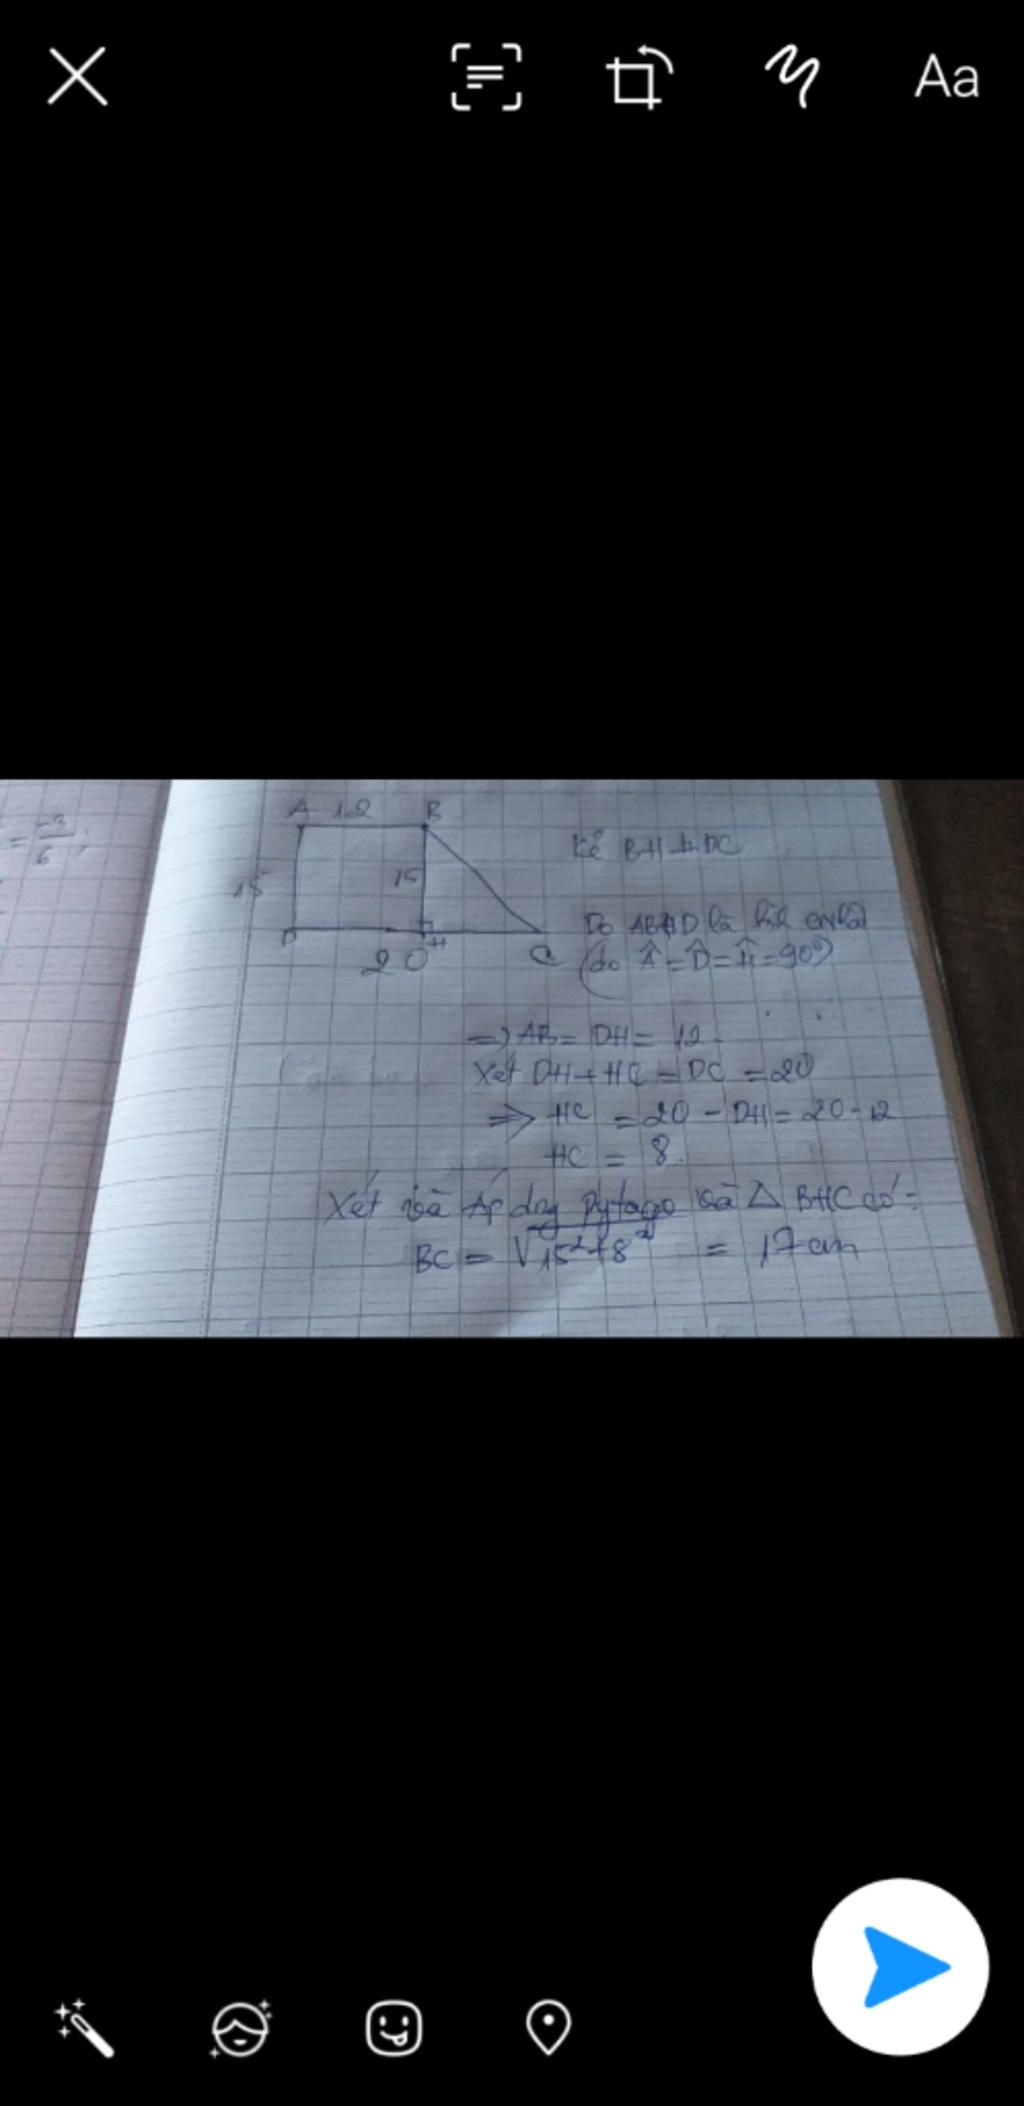 Aa
= -3/6 ;
A 12 B
15 15
D H C
20
Kẻ BH ⊥ DC
Do ABHD là hình chữ nhật
(do Â = D̂ = Ĥ = 90°)
=> AB = DH = 12
Xét DH + HC = DC = 20
=> HC = 20 - DH = 20 - 12
HC = 8
Xét và Áp dng pytago và △ BHC có:
BC = √15² + 8² = 17 cm